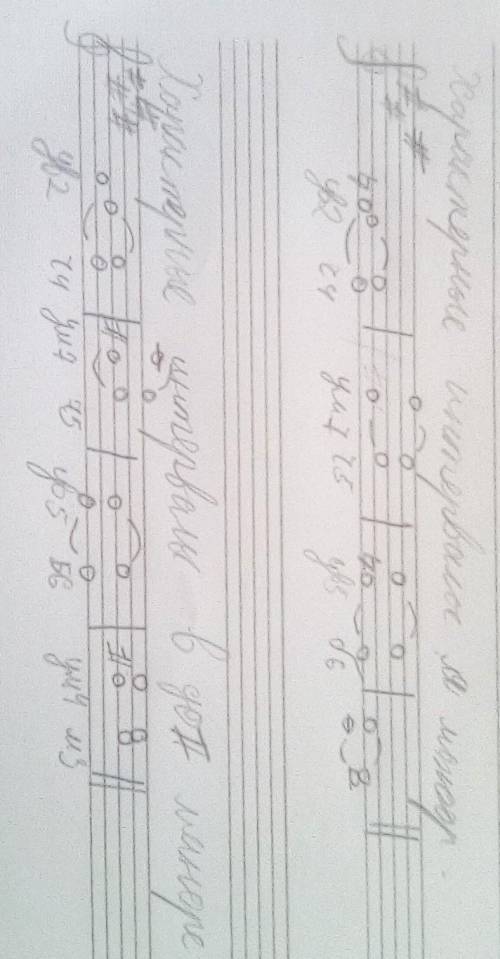 Характерные интервалы ля мажор.
ув2 ч4 ум7 ч5 ув5 б6
Характерные интервалы в до# миноре
ув2 ч4 ум7 ч5 ув5 б6 ум4 м3